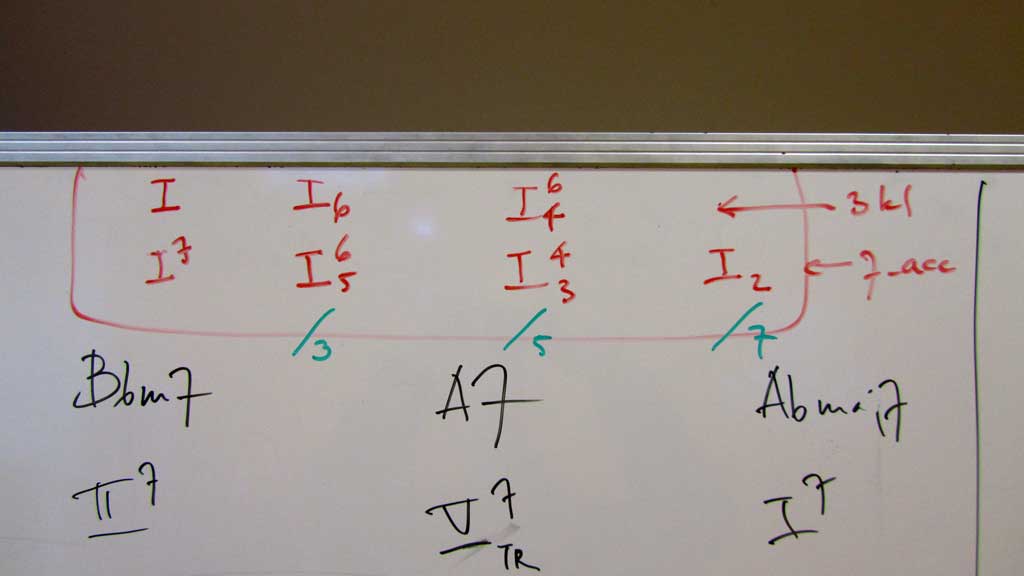 I I6 I64 ← 3kl
I7 I65 I43 I2 ← 7-acc
/3 /5 /7
Bbm7 A7 Abmaj7
II7 V7TR I7